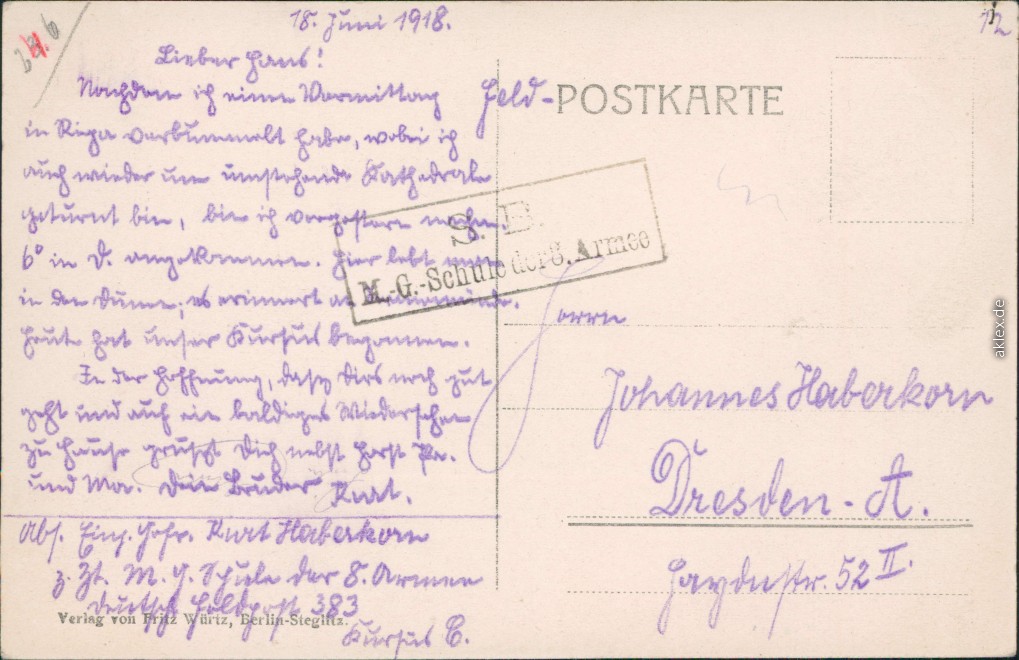 18. Juni 1918.
Lieber Hans!
Nachdem ich einen Vormittag
in Riga verbummelt habe, wobei ich
auch wieder um umstehende Kathedrale
geturnt bin, bin ich vorgestern nachm.
6° in D. angekommen. Hier lebt man
in den Dünen; es erinnert an
Heute hat unser Kursus begonnen.
In der Hoffnung, dass Dirs noch gut
geht und auf ein baldiges Wiedersehen
zu Hause grüsst Dich nebst Horst Pa.
und Ma. Dein Bruder Kurt.
Abs. Einj. Gefr. Kurt Haberkorn
z. Zt. M. G. Schule der 8. Armee
Deutsche Feldpost 383
Kursus C.
Verlag von Fritz Würtz, Berlin-Steglitz.
Feld-POSTKARTE
S. B.
M.-G.-Schule der 8. Armee
Herrn
Johannes Haberkorn
Dresden-A.
Haydnstr. 52 II.
12
aklex.de